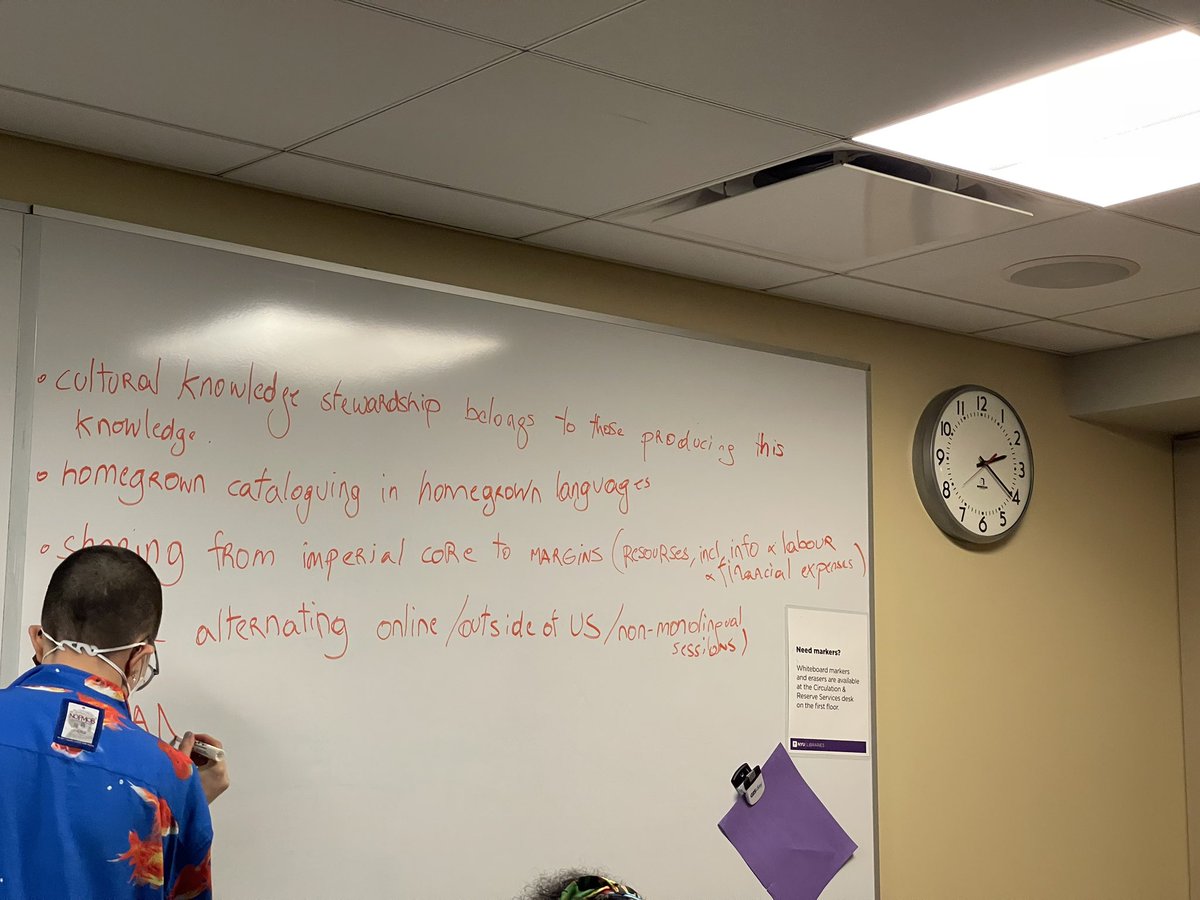 • cultural knowledge stewardship belongs to those producing this
knowledge.
• homegrown cataloguing in homegrown languages
• sharing from imperial core to MARGINS (RESOURSES, incl. info & labour
& financial expenses)
alternating online/outside of US/non-monolingual
sessions)
Need markers?
Whiteboard markers
and erasers are available
at the Circulation &
Reserve Services desk
on the first floor.
NYU LIBRARIES
11 12 1
10 2
9 3
8 4
7 6 5